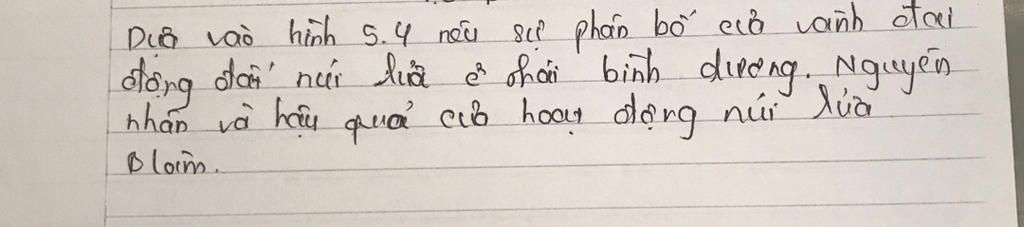 Dựa vào hình 5.4 nêu sự phân bố của vành đai
động đất núi lửa ở thái bình dương. Nguyên
nhân và hậu quả của hoạt động núi lửa